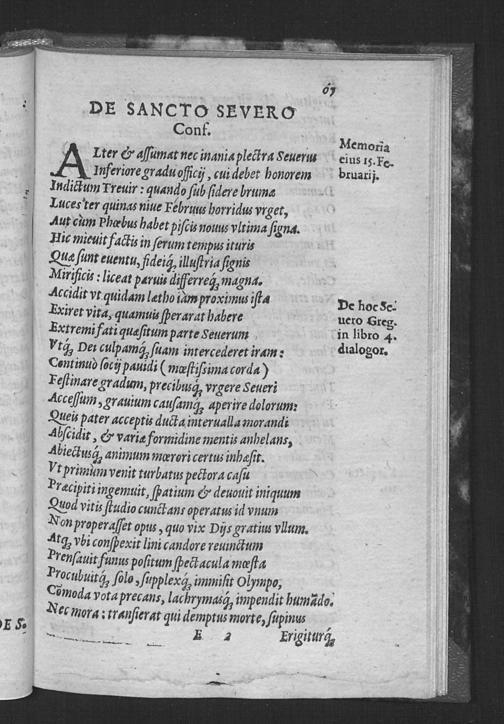 67
DE SANCTO SEVERO
Conf.
ALter & aſſumat nec inania plectra Seuerus
Inferiore gradu officij, cui debet honorem
Indictum Treuir: quando ſub ſidere brumæ
Luces ter quinas niue Februus horridus vrget,
Aut cùm Phœbus habet piſcis nouus vltima ſigna.
Hic micuit factis in ſerum tempus ituris
Quæ ſunt euentu, fideiq́; illuſtria ſignis
Mirificis: liceat paruis differreq́; magna.
Accidit vt quidam lætho iàm proximus iſta
Exiret vita, quamuis ſperarat habere
Extremi fati quæſitum parte Seuerum
Vtq́; Dei culpamq́; ſuam intercederet iram:
Continuò ſocij pauidi (mœſtiſsima corda)
Feſtinare gradum, precibusq́; vrgere Seueri
Acceſſum, grauium cauſamq́; aperire dolorum:
Queis pater acceptis ducta interualla morandi
Abſcidit, & variæ formidine mentis anhelans,
Abiectusq́; animum mœrori certus inhæſit.
Vt primùm venit turbatus pectora caſu
Præcipiti ingemuit, ſpatium & deuouit iniquum
Quod vitis ſtudio cunctans operatus id vnum
Non properaſſet opus, quo vix Dijs gratius vllum.
Atq́; vbi conſpexit lini candore reuinctum
Prenſauit funus poſitum ſpectacula mœſta
Procubuitq́; ſolo, ſupplexq́; immiſit Olympo,
Cōmoda vota precans, lachrymasq́; impendit humādo.
Nec mora: tranſierat qui demptus morte, ſupinus
E 2
Erigiturq́;
Memoria
eius 15. Fe-
bruarij.
De hoc Se-
uero Greg.
in libro 4.
dialogor.
DE S.